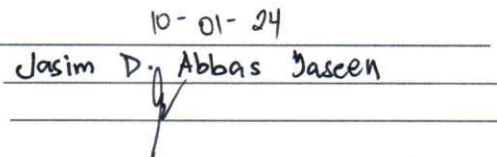 10-01-24
Jasim D. Abbas Yaseen